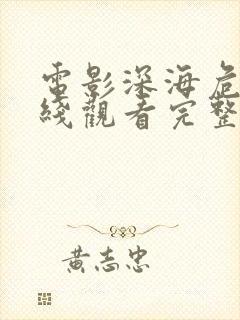 電影深海危
綫觀看完整
黃志忠